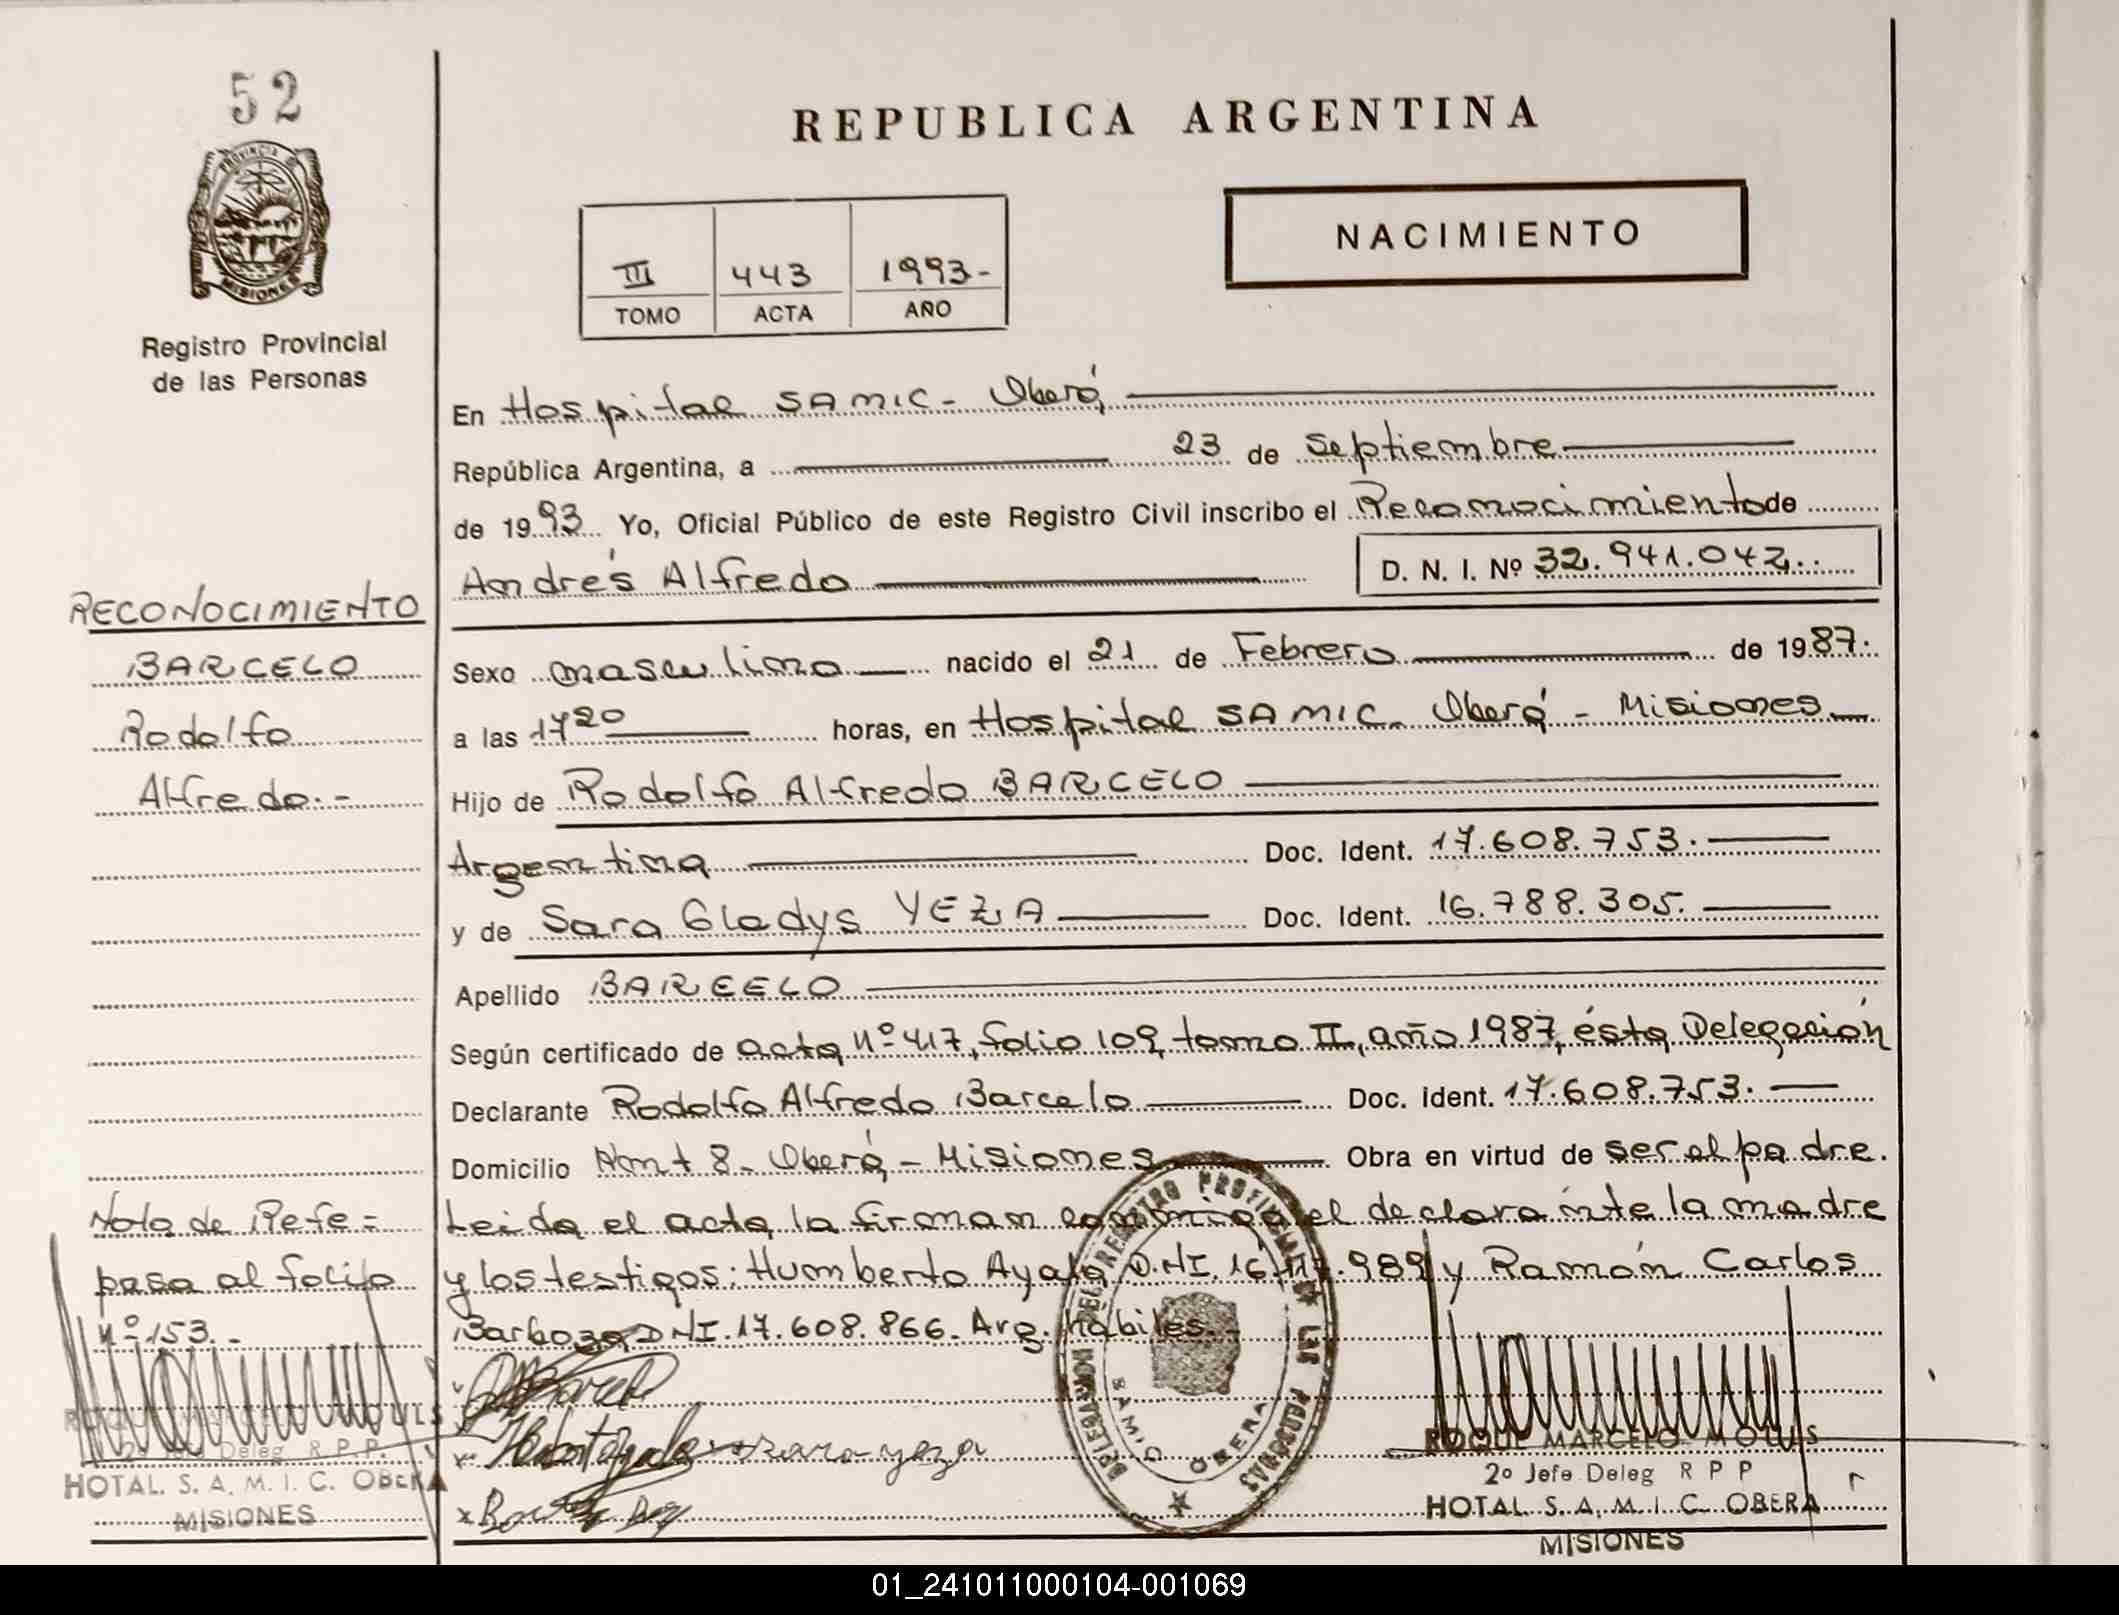 52
PROVINCIA D
MISIONES
Registro Provincial
de las Personas
REPUBLICA ARGENTINA
NACIMIENTO
III 443 1993-
TOMO ACTA AÑO
En Hospital SAMIC - Oberá,
República Argentina, a 23 de Septiembre
de 1993 Yo, Oficial Público de este Registro Civil inscribo el Reconocimiento de
Andrés Alfredo D. N. I. Nº 32.941.042.
Sexo masculino nacido el 21 de Febrero de 1987.
a las 17 20 horas, en Hospital SAMIC. Oberá - Misiones
Hijo de Rodolfo Alfredo BARCELO
Argentina Doc. Ident. 17.608.753.
y de Sara Gladys YEZA Doc. Ident. 16.788.305.
Apellido BARCELO
Según certificado de acta nº 417, folio 109, tomo II, año 1987, ésta Delegación
Declarante Rodolfo Alfredo Barcelo Doc. Ident. 17.608.753.
Domicilio 8 - Oberá - Misiones Obra en virtud de ser el padre.
Leida el acta, la firman conmigo el declarante la madre
y los testigos: Humberto Ayala, D.NI. 16. .989 y Ramón Carlos
Barboza DNI. 17.608.866. Arg. hábiles.
RECONOCIMIENTO
BARCELO
Rodolfo
Alfredo.-
Nota de Refe=
pasa al folio
nº 153.-
2 Deleg R.P.P.
HOTAL. S. A. M. I. C. OBERA
MISIONES
x Sara yeza
DELEGACION DEL REGISTRO PROVINCIAL DE LAS PERSONAS
SAMIC OBERA
ROQUE MARCELO MOLIS
2º Jefe Deleg R P P
HOTAL S. A. M. I. C. OBERA
MISIONES
01_241011000104-001069